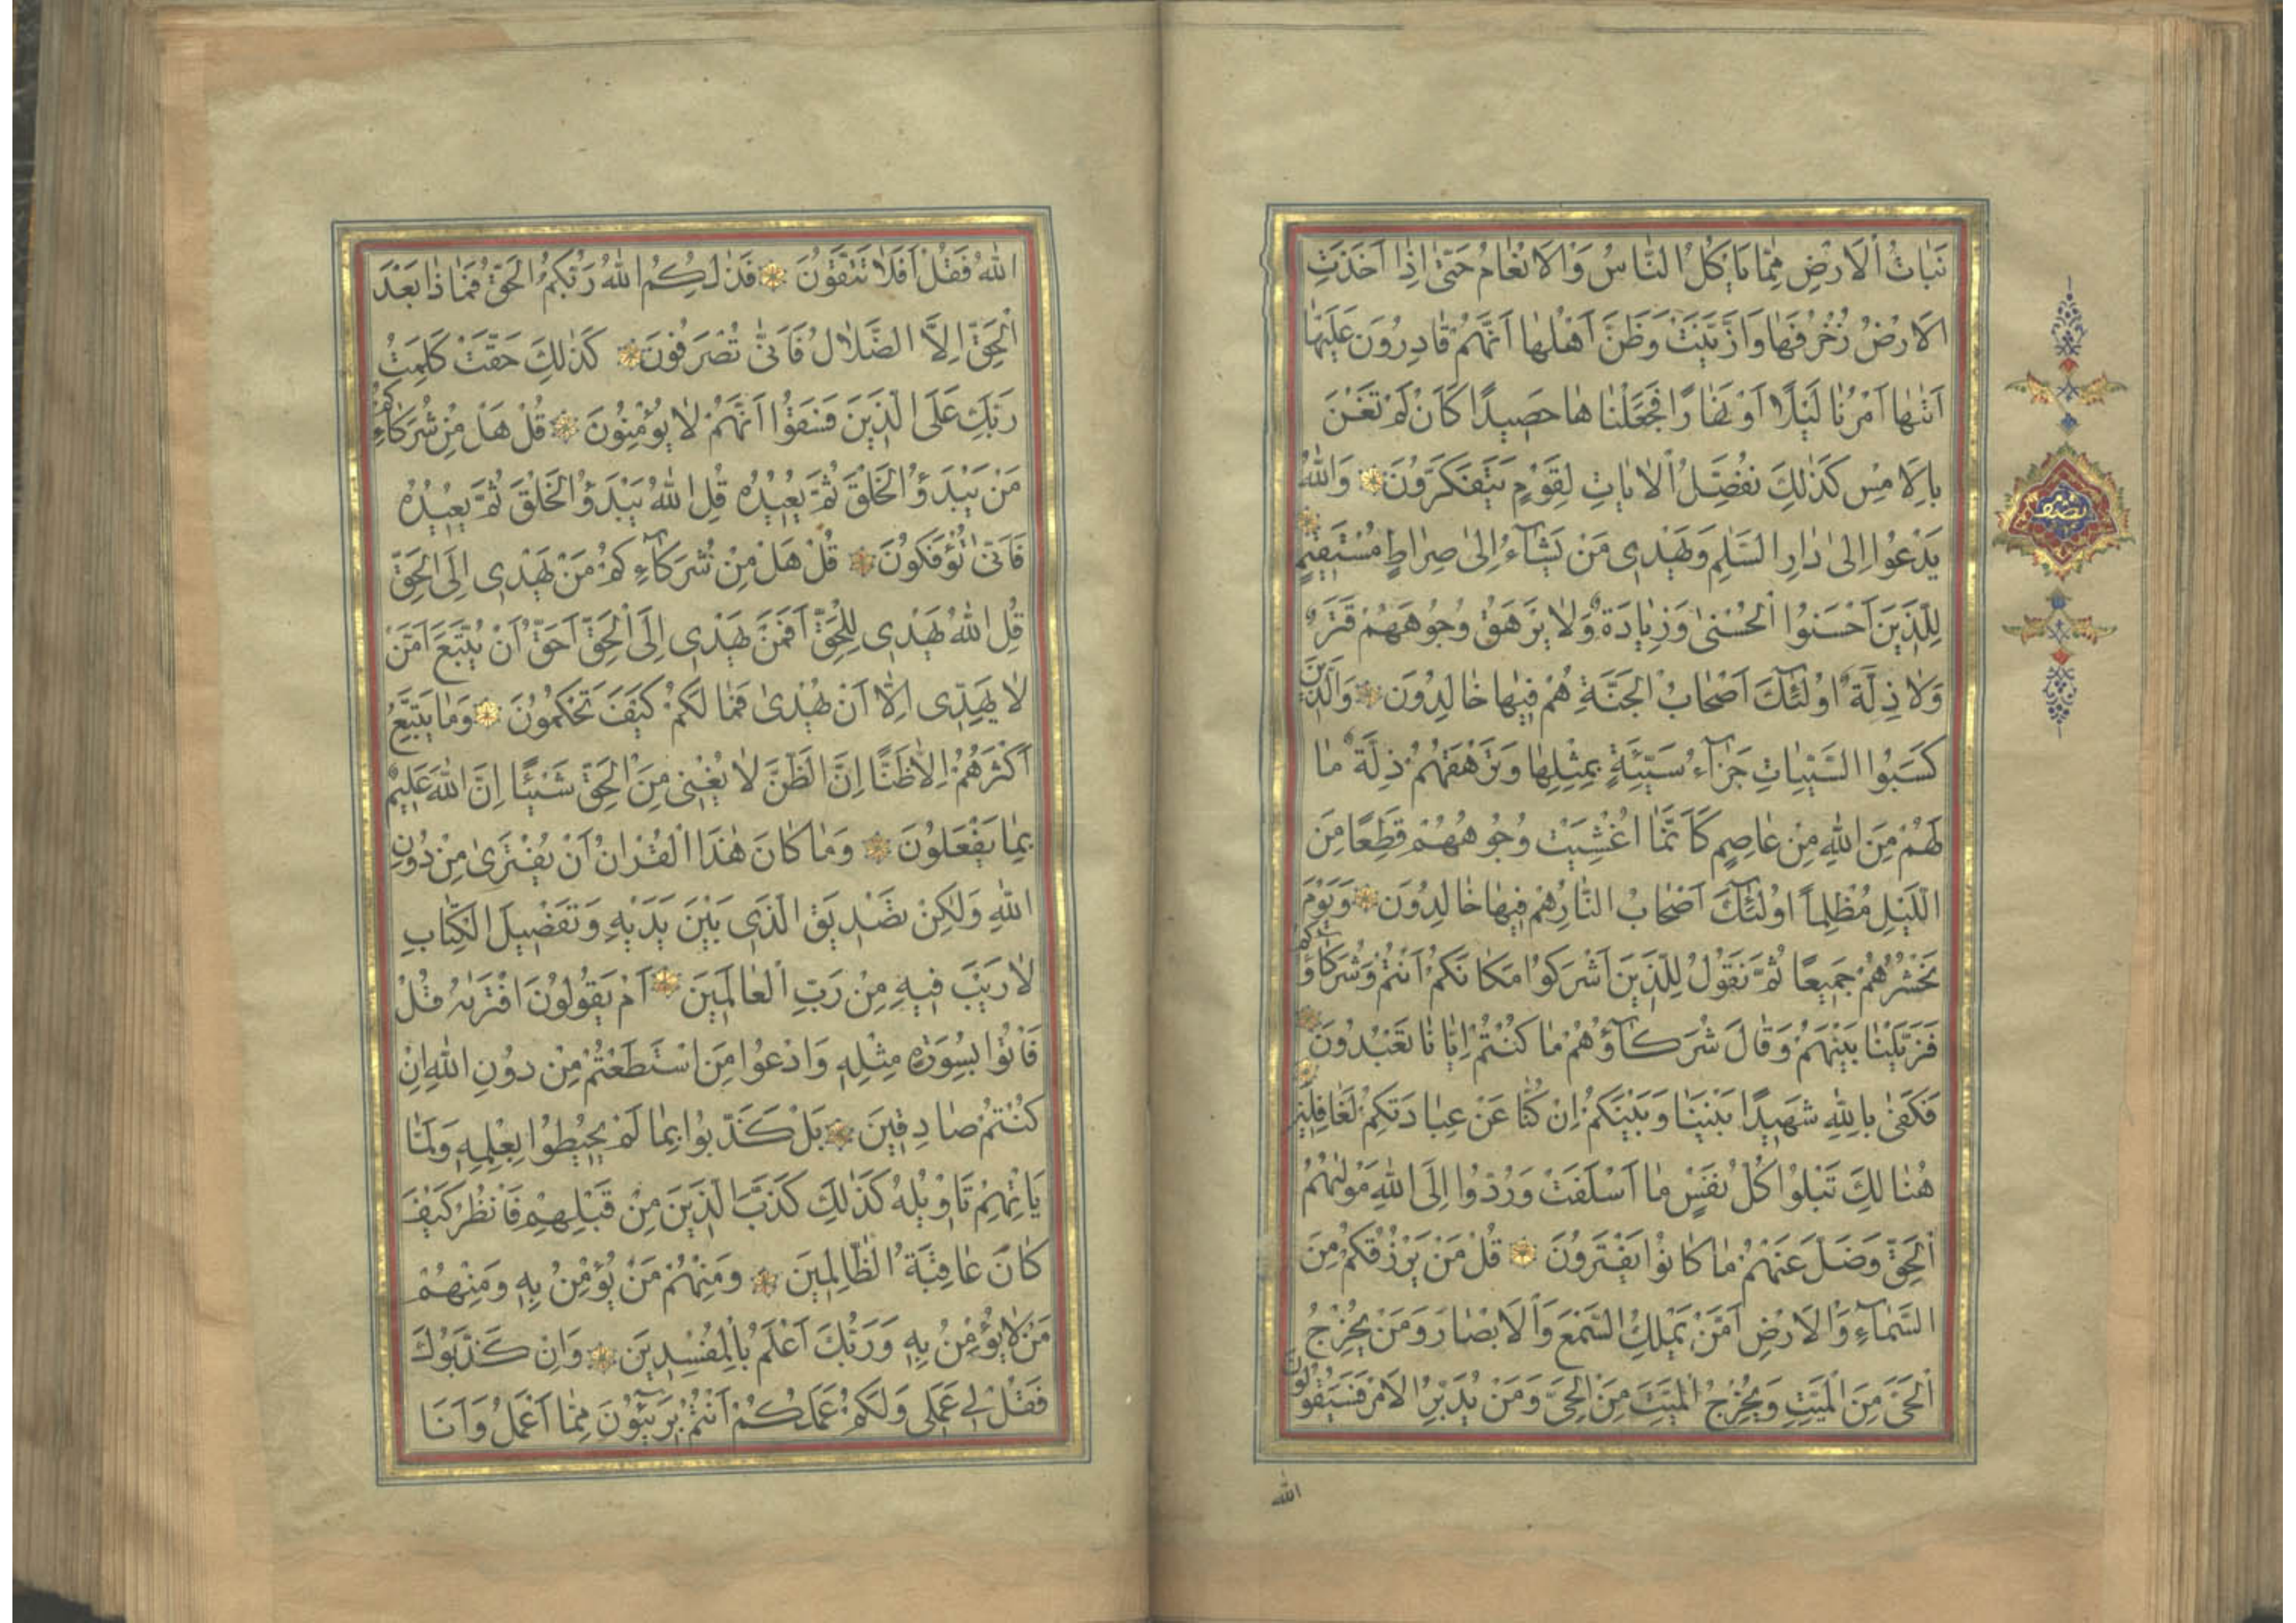 نَبَاتُ الْاَرْضِ مِمَّا يَاْكُلُ النَّاسُ وَالْاَنْعَامُ حَتّٰى اِذَا اَخَذَتِ
الْاَرْضُ زُخْرُفَهَا وَازَّيَّنَتْ وَظَنَّ اَهْلُهَا اَنَّهُمْ قَادِرُونَ عَلَيْهَا
اَتٰيهَا اَمْرُنَا لَيْلًا اَوْ نَهَارًا فَجَعَلْنَاهَا حَصِيدًا كَاَنْ لَمْ تَغْنَ
بِالْاَمْسِ كَذٰلِكَ نُفَصِّلُ الْاٰيَاتِ لِقَوْمٍ يَتَفَكَّرُونَ وَاللّٰهُ
يَدْعُوا اِلٰى دَارِ السَّلٰمِ وَيَهْدِى مَنْ يَشَآءُ اِلٰى صِرَاطٍ مُسْتَقِيمٍ
لِلَّذِينَ اَحْسَنُوا الْحُسْنٰى وَزِيَادَةٌ وَلَا يَرْهَقُ وُجُوهَهُمْ قَتَرٌ
وَلَا ذِلَّةٌ اُولٰٓئِكَ اَصْحَابُ الْجَنَّةِ هُمْ فِيهَا خَالِدُونَ وَالَّذِينَ
كَسَبُوا السَّيِّئَاتِ جَزَآءُ سَيِّئَةٍ بِمِثْلِهَا وَتَرْهَقُهُمْ ذِلَّةٌ مَا
لَهُمْ مِنَ اللّٰهِ مِنْ عَاصِمٍ كَاَنَّمَا اُغْشِيَتْ وُجُوهُهُمْ قِطَعًا مِنَ
الَّيْلِ مُظْلِمًا اُولٰٓئِكَ اَصْحَابُ النَّارِ هُمْ فِيهَا خَالِدُونَ وَيَوْمَ
نَحْشُرُهُمْ جَمِيعًا ثُمَّ نَقُولُ لِلَّذِينَ اَشْرَكُوا مَكَانَكُمْ اَنْتُمْ وَشُرَكَآؤُكُمْ
فَزَيَّلْنَا بَيْنَهُمْ وَقَالَ شُرَكَآؤُهُمْ مَا كُنْتُمْ اِيَّانَا تَعْبُدُونَ
فَكَفٰى بِاللّٰهِ شَهِيدًا بَيْنَنَا وَبَيْنَكُمْ اِنْ كُنَّا عَنْ عِبَادَتِكُمْ لَغَافِلِينَ
هُنَالِكَ تَبْلُوا كُلُّ نَفْسٍ مَا اَسْلَفَتْ وَرُدُّوا اِلَى اللّٰهِ مَوْلٰيهُمُ
الْحَقِّ وَضَلَّ عَنْهُمْ مَا كَانُوا يَفْتَرُونَ قُلْ مَنْ يَرْزُقُكُمْ مِنَ
السَّمَآءِ وَالْاَرْضِ اَمَّنْ يَمْلِكُ السَّمْعَ وَالْاَبْصَارَ وَمَنْ يُخْرِجُ
الْحَىَّ مِنَ الْمَيِّتِ وَيُخْرِجُ الْمَيِّتَ مِنَ الْحَىِّ وَمَنْ يُدَبِّرُ الْاَمْرَ فَسَيَقُولُونَ
اللّٰه
اللّٰهُ فَقُلْ اَفَلَا تَتَّقُونَ فَذٰلِكُمُ اللّٰهُ رَبُّكُمُ الْحَقُّ فَمَاذَا بَعْدَ
الْحَقِّ اِلَّا الضَّلَالُ فَاَنّٰى تُصْرَفُونَ كَذٰلِكَ حَقَّتْ كَلِمَتُ
رَبِّكَ عَلَى الَّذِينَ فَسَقُوا اَنَّهُمْ لَا يُؤْمِنُونَ قُلْ هَلْ مِنْ شُرَكَآءِكُمْ
مَنْ يَبْدَؤُا الْخَلْقَ ثُمَّ يُعِيدُهُ قُلِ اللّٰهُ يَبْدَؤُا الْخَلْقَ ثُمَّ يُعِيدُهُ
فَاَنّٰى تُؤْفَكُونَ قُلْ هَلْ مِنْ شُرَكَآءِكُمْ مَنْ يَهْدِى اِلَى الْحَقِّ
قُلِ اللّٰهُ يَهْدِى لِلْحَقِّ اَفَمَنْ يَهْدِى اِلَى الْحَقِّ اَحَقُّ اَنْ يُتَّبَعَ اَمَّنْ
لَا يَهِدِّى اِلَّا اَنْ يُهْدٰى فَمَا لَكُمْ كَيْفَ تَحْكُمُونَ وَمَا يَتَّبِعُ
اَكْثَرُهُمْ اِلَّا ظَنًّا اِنَّ الظَّنَّ لَا يُغْنِى مِنَ الْحَقِّ شَيْئًا اِنَّ اللّٰهَ عَلِيمٌ
بِمَا يَفْعَلُونَ وَمَا كَانَ هٰذَا الْقُرْاٰنُ اَنْ يُفْتَرٰى مِنْ دُونِ
اللّٰهِ وَلٰكِنْ تَصْدِيقَ الَّذِى بَيْنَ يَدَيْهِ وَتَفْصِيلَ الْكِتَابِ
لَا رَيْبَ فِيهِ مِنْ رَبِّ الْعَالَمِينَ اَمْ يَقُولُونَ افْتَرٰيهُ قُلْ
فَاْتُوا بِسُورَةٍ مِثْلِهِ وَادْعُوا مَنِ اسْتَطَعْتُمْ مِنْ دُونِ اللّٰهِ اِنْ
كُنْتُمْ صَادِقِينَ بَلْ كَذَّبُوا بِمَا لَمْ يُحِيطُوا بِعِلْمِهِ وَلَمَّا
يَاْتِهِمْ تَاْوِيلُهُ كَذٰلِكَ كَذَّبَ الَّذِينَ مِنْ قَبْلِهِمْ فَانْظُرْ كَيْفَ
كَانَ عَاقِبَةُ الظَّالِمِينَ وَمِنْهُمْ مَنْ يُؤْمِنُ بِهِ وَمِنْهُمْ
مَنْ لَا يُؤْمِنُ بِهِ وَرَبُّكَ اَعْلَمُ بِالْمُفْسِدِينَ وَاِنْ كَذَّبُوكَ
فَقُلْ لِى عَمَلِى وَلَكُمْ عَمَلُكُمْ اَنْتُمْ بَرِيٓئُونَ مِمَّا اَعْمَلُ وَاَنَا